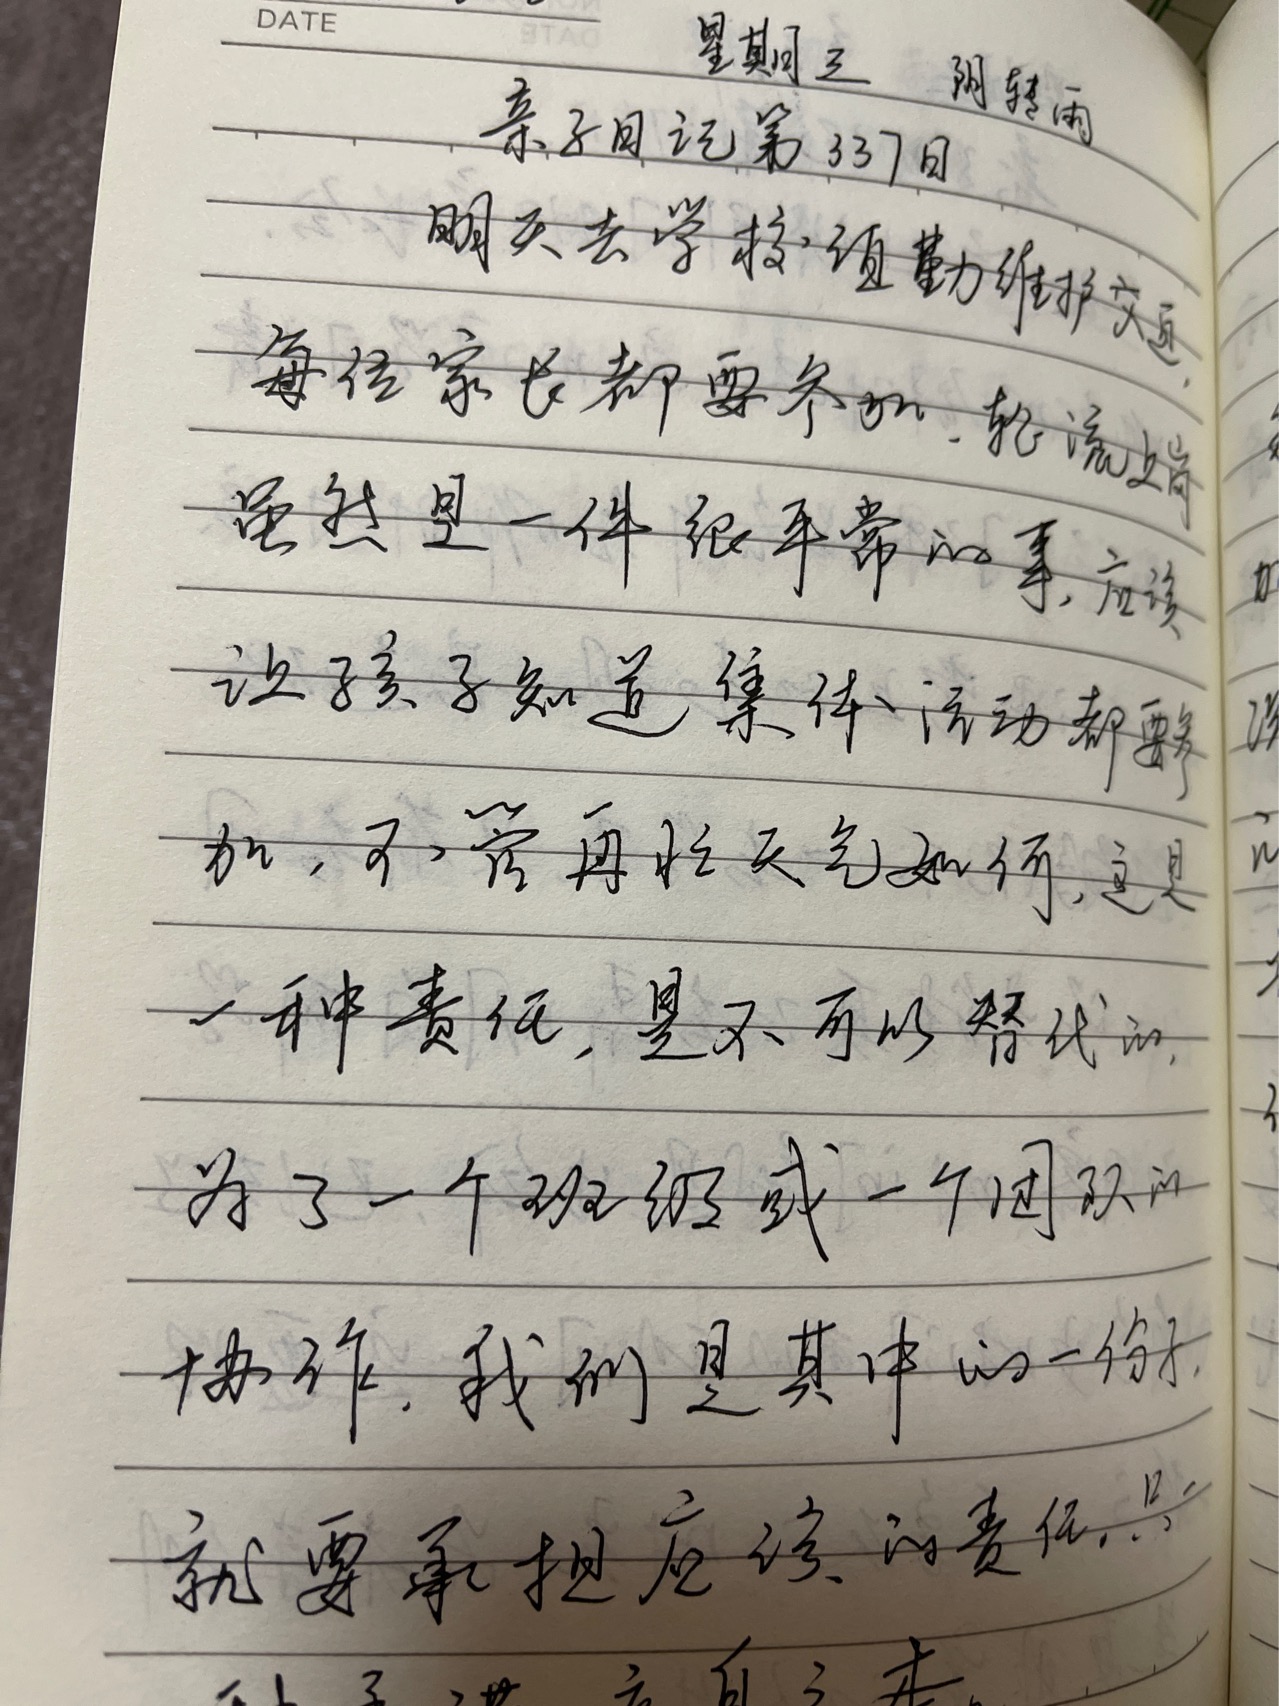 DATE
星期三 阴转雨
亲子日记第337日
明天去学校值勤维护交通,
每位家长都要参加.轮流上岗
虽然是一件很平常的事,应该
让孩子知道集体活动都要参
加,不管再忙天气如何,这是
一种责任,是不可以替代的,
为了一个班级或一个团队的
协作.我们是其中的一份子,
就要承担应该的责任.只